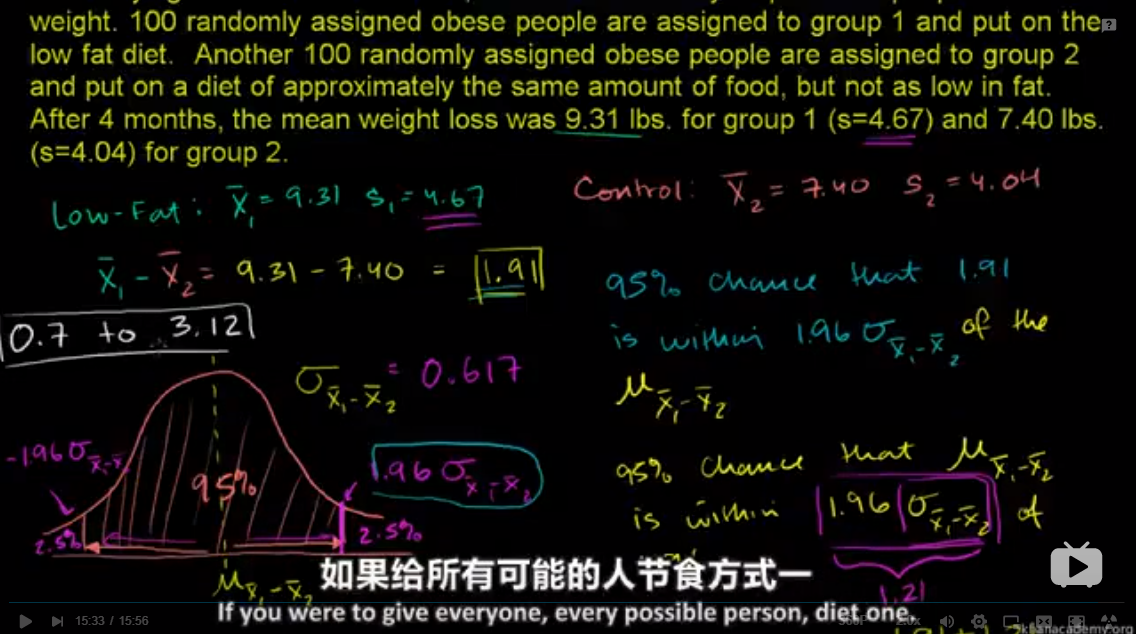 weight. 100 randomly assigned obese people are assigned to group 1 and put on the
low fat diet. Another 100 randomly assigned obese people are assigned to group 2
and put on a diet of approximately the same amount of food, but not as low in fat.
After 4 months, the mean weight loss was 9.31 lbs. for group 1 (s=4.67) and 7.40 lbs.
(s=4.04) for group 2.
Low-Fat: x̄₁ = 9.31 s₁ = 4.67
Control: x̄₂ = 7.40 s₂ = 4.04
x̄₁ - x̄₂ = 9.31 - 7.40 = 1.91
0.7 to 3.12
σx̄₁-x̄₂ = 0.617
95% chance that 1.91
is within 1.96 σx̄₁-x̄₂ of the
μx̄₁-x̄₂
-1.96σx̄₁-x̄
1.96 σx̄₁-x̄₂
95%
2.5%
2.5%
μx̄₁-x̄₂
95% chance that μx̄₁-x̄₂
is within 1.96 σx̄₁-x̄₂ of
1.21
如果给所有可能的人节食方式一
If you were to give everyone, every possible person, diet one,
15:33 / 15:56
360P
2.0x
khanacademy.org